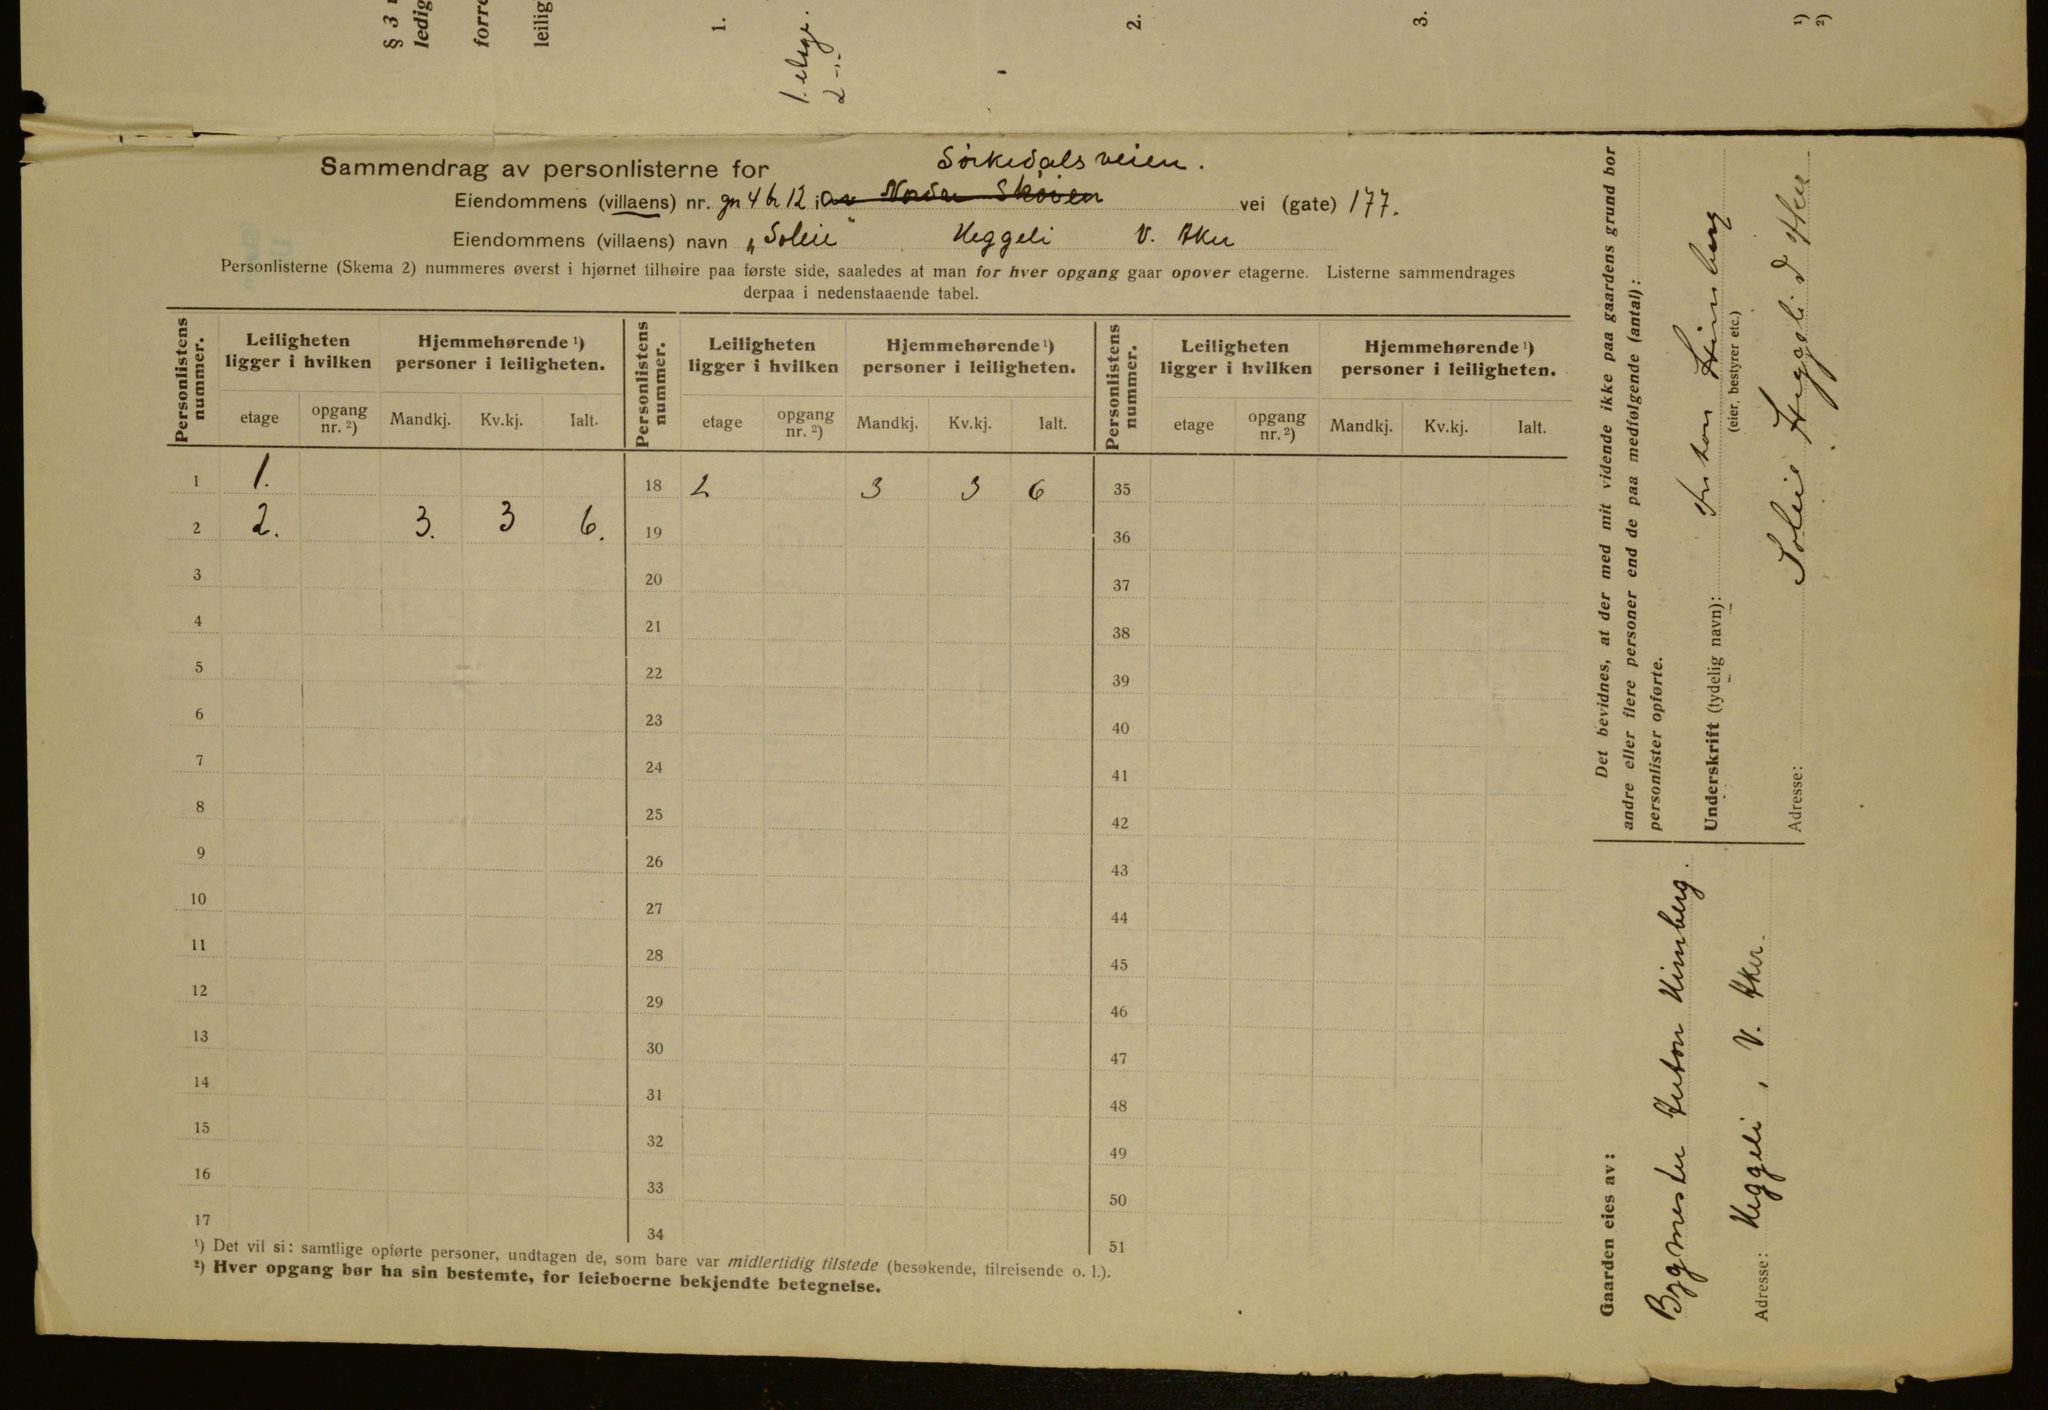 § 3
ledig
forre
leilig
1.
1. etage.
2 -"-
2.
3.
¹)
²)
Sammendrag av personlisterne for
Sörkedalsveien.
Eiendommens (villaens) nr. gn 4 br 12 i av Nordre Skøien vei (gate) 177.
Eiendommens (villaens) navn „Soleie" Heggeli V. Aker
Personlisterne (Skema 2) nummeres øverst i hjørnet tilhøire paa første side, saaledes at man for hver opgang gaar opover etagerne. Listerne sammendrages
derpaa i nedenstaaende tabel.
Personlistens nummer. Leiligheten ligger i hvilken Hjemmehørende ¹) personer i leiligheten. Personlistens nummer. Leiligheten ligger i hvilken Hjemmehørende ¹) personer i leiligheten. Personlistens nummer. Leiligheten ligger i hvilken Hjemmehørende ¹) personer i leiligheten.
etage opgang nr. ²) Mandkj. Kv.kj. Ialt. etage opgang nr. ²) Mandkj. Kv.kj. Ialt. etage opgang nr. ²) Mandkj. Kv.kj. Ialt.
1 1. 18 2 3 3 6 35
2 2. 3. 3 6. 19 36
3 20 37
4 21 38
5 22 39
6 23 40
7 24 41
8 25 42
9 26 43
10 27 44
11 28 45
12 29 46
13 30 47
14 31 48
15 32 49
16 33 50
17 34 51
¹) Det vil si: samtlige opførte personer, undtagen de, som bare var midlertidig tilstede (besøkende, tilreisende o. l.).
²) Hver opgang bør ha sin bestemte, for leieboerne bekjendte betegnelse.
Det bevidnes, at der med mit vidende ikke paa gaardens grund bor
andre eller flere personer end de paa medfølgende (antal):
personlister opførte.
Underskrift (tydelig navn): Anton Himberg
(eier, bestyrer etc.)
Adresse: Soleie Heggeli V Aker
Gaarden eies av:
Bygmester Anton Himberg.
Adresse: Heggeli, V. Aker.